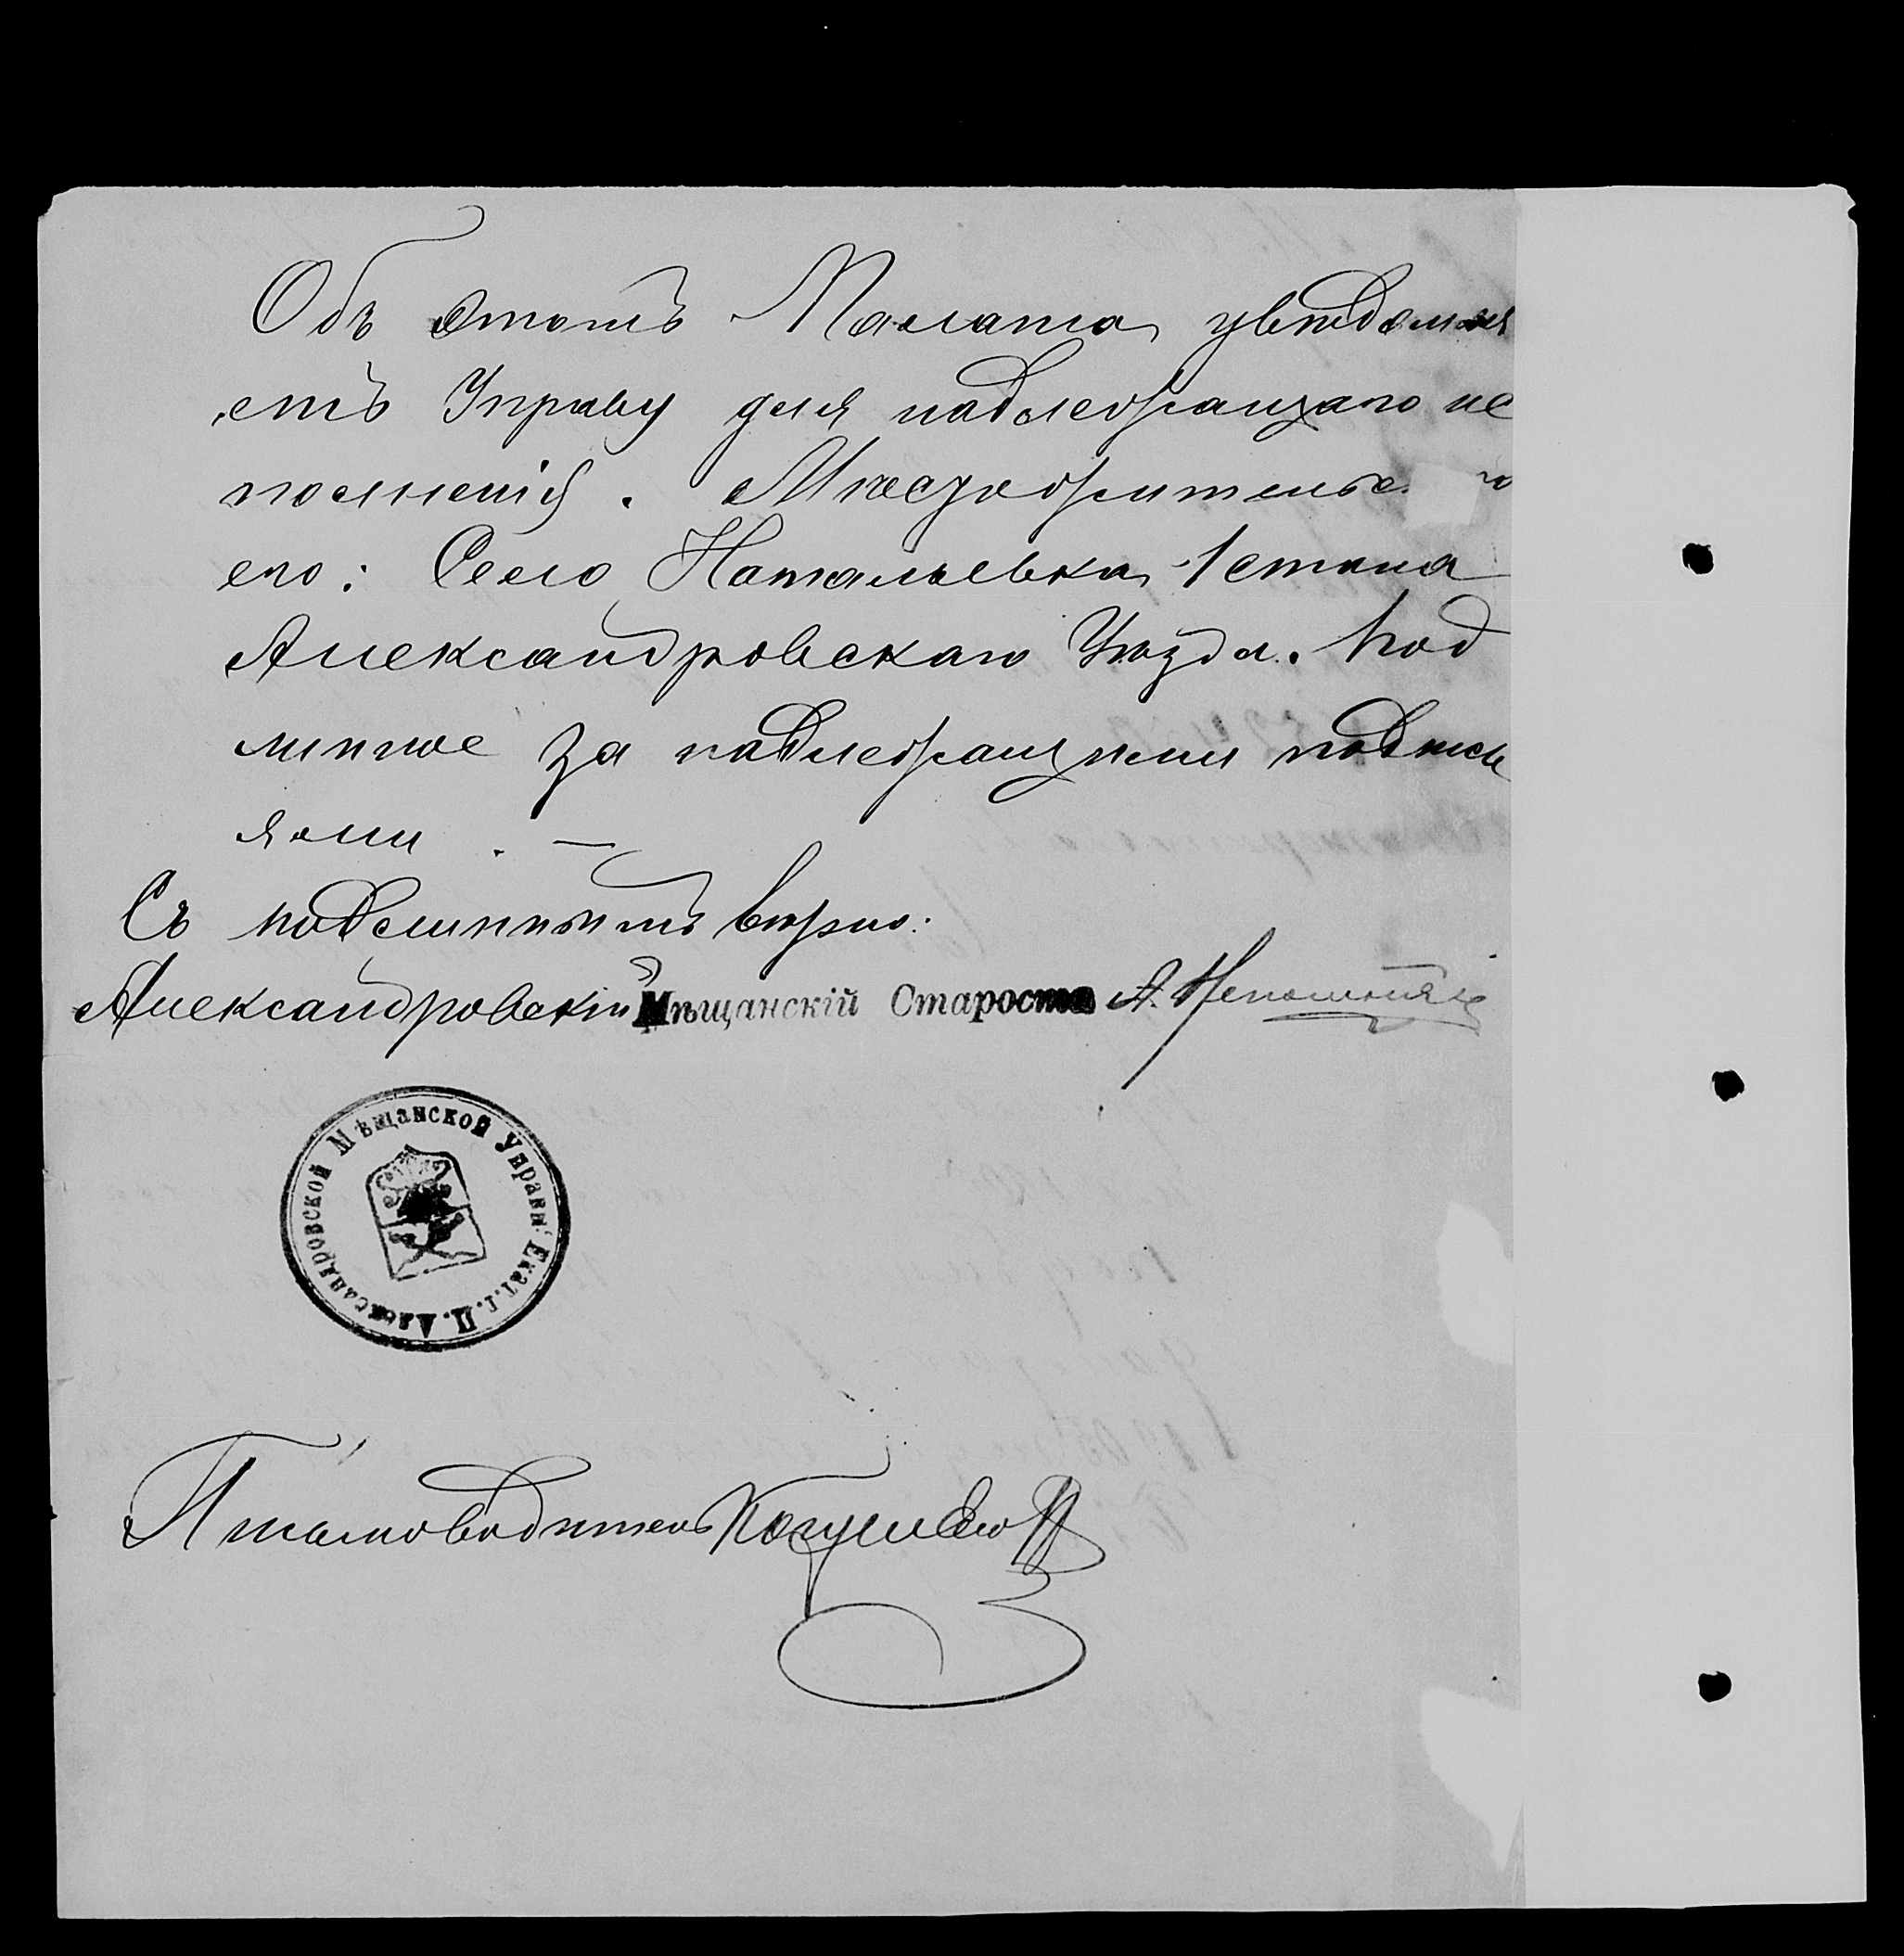 Объ этомъ Палата увѣдомля
етъ Управу для надлежащаго ис
полненія. Мѣстожительс
его: Село Натальевка 1 стана
Александровскаго Уѣзда. Под
линное за надлежащими подпис
ями. —
Съ подлиннымъ вѣрно:
Александровскій Мѣщанскій Староста А.
Александровской Мѣщанской Управы Екат. Г. П.
Письмоводитель